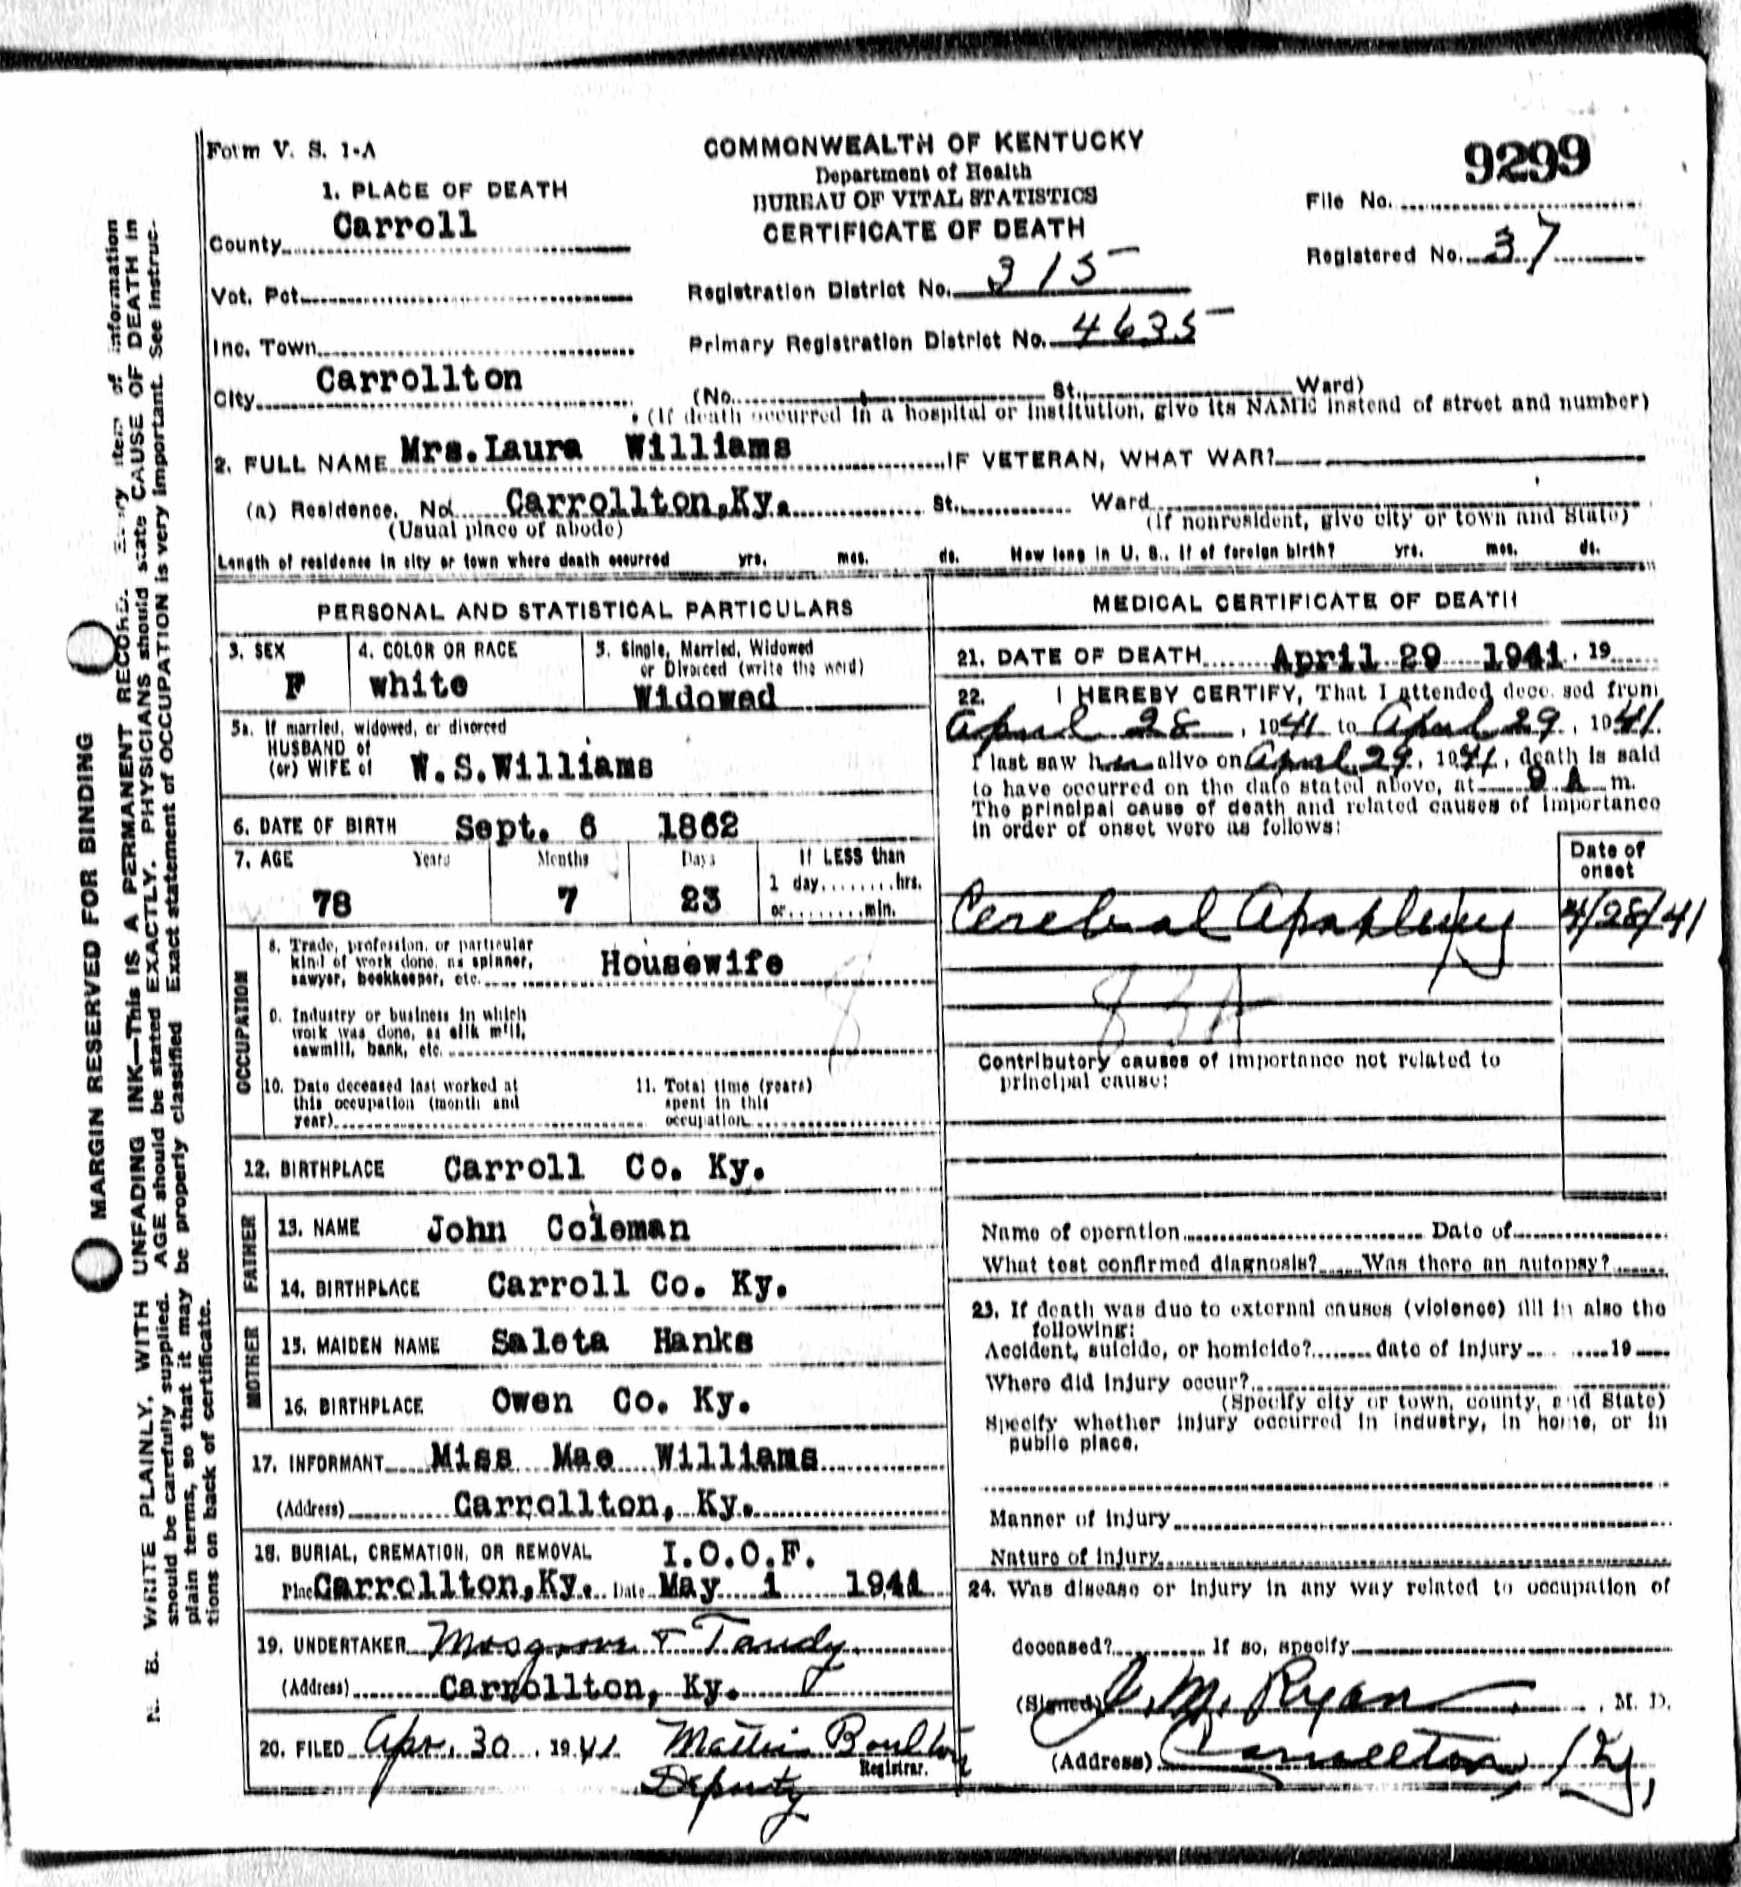 Form V. S. 1-A
COMMONWEALTH OF KENTUCKY
Department of Health
BUREAU OF VITAL STATISTICS
CERTIFICATE OF DEATH
9299
File No.
Registered No. 37
1. PLACE OF DEATH
County Carroll
Vot. Pct.
Registration District No. 315
Inc. Town
Primary Registration District No. 4635
City Carrollton
(No. St., Ward)
(If death occurred in a hospital or institution, give its NAME instead of street and number)
2. FULL NAME Mrs. Laura Williams IF VETERAN, WHAT WAR?
(a) Residence. No. Carrollton, Ky. St., Ward
(Usual place of abode) (If nonresident, give city or town and State)
Length of residence in city or town where death occurred yrs. mos. ds. How long in U. S., if of foreign birth? yrs. mos. ds.
PERSONAL AND STATISTICAL PARTICULARS
3. SEX F
4. COLOR OR RACE white
5. Single, Married, Widowed
or Divorced (write the word)
Widowed
5a. If married, widowed, or divorced
HUSBAND of
(or) WIFE of W.S.Williams
6. DATE OF BIRTH Sept. 6 1862
7. AGE Years Months Days If LESS than
1 day, hrs.
78 7 23 or min.
OCCUPATION
8. Trade, profession, or particular
kind of work done, as spinner, Housewife
sawyer, bookkeeper, etc.
9. Industry or business in which
work was done, as silk mill,
sawmill, bank, etc.
10. Date deceased last worked at
this occupation (month and
year)
11. Total time (years)
spent in this
occupation
12. BIRTHPLACE Carroll Co. Ky.
FATHER
13. NAME John Coleman
14. BIRTHPLACE Carroll Co. Ky.
MOTHER
15. MAIDEN NAME Saleta Hanks
16. BIRTHPLACE Owen Co. Ky.
17. INFORMANT Miss Mae Williams
(Address) Carrollton, Ky.
18. BURIAL, CREMATION, OR REMOVAL I.O.O.F.
Place Carrollton, Ky. Date May 1 1941
19. UNDERTAKER Mosgrove & Tandy
(Address) Carrollton, Ky.
20. FILED Apr. 30, 1941 Mattie Boulton
Registrar.
Deputy
MEDICAL CERTIFICATE OF DEATH
21. DATE OF DEATH April 29 1941, 19
22. I HEREBY CERTIFY, That I attended deceased from
April 28, 1941 to April 29, 1941.
I last saw her alive on April 29, 1941, death is said
to have occurred on the date stated above, at 9 A m.
The principal cause of death and related causes of importance
in order of onset were as follows:
Date of
onset
Cerebral Apoplexy 4/28/41
83A
Contributory causes of importance not related to
principal cause:
Name of operation Date of
What test confirmed diagnosis? Was there an autopsy?
23. If death was due to external causes (violence) fill in also the
following:
Accident, suicide, or homicide? date of injury 19
Where did injury occur?
(Specify city or town, county, and State)
Specify whether injury occurred in industry, in home, or in
public place.
Manner of injury
Nature of injury
24. Was disease or injury in any way related to occupation of
deceased? If so, specify
(Signed) J. M. Ryan, M. D.
(Address) Carrollton, Ky,
MARGIN RESERVED FOR BINDING
N. B. WRITE PLAINLY, WITH UNFADING INK—This IS A PERMANENT RECORD. Every item of information
should be carefully supplied. AGE should be stated EXACTLY. PHYSICIANS should state CAUSE OF DEATH in
plain terms, so that it may be properly classified Exact statement of OCCUPATION is very important. See instruc-
tions on back of certificate.